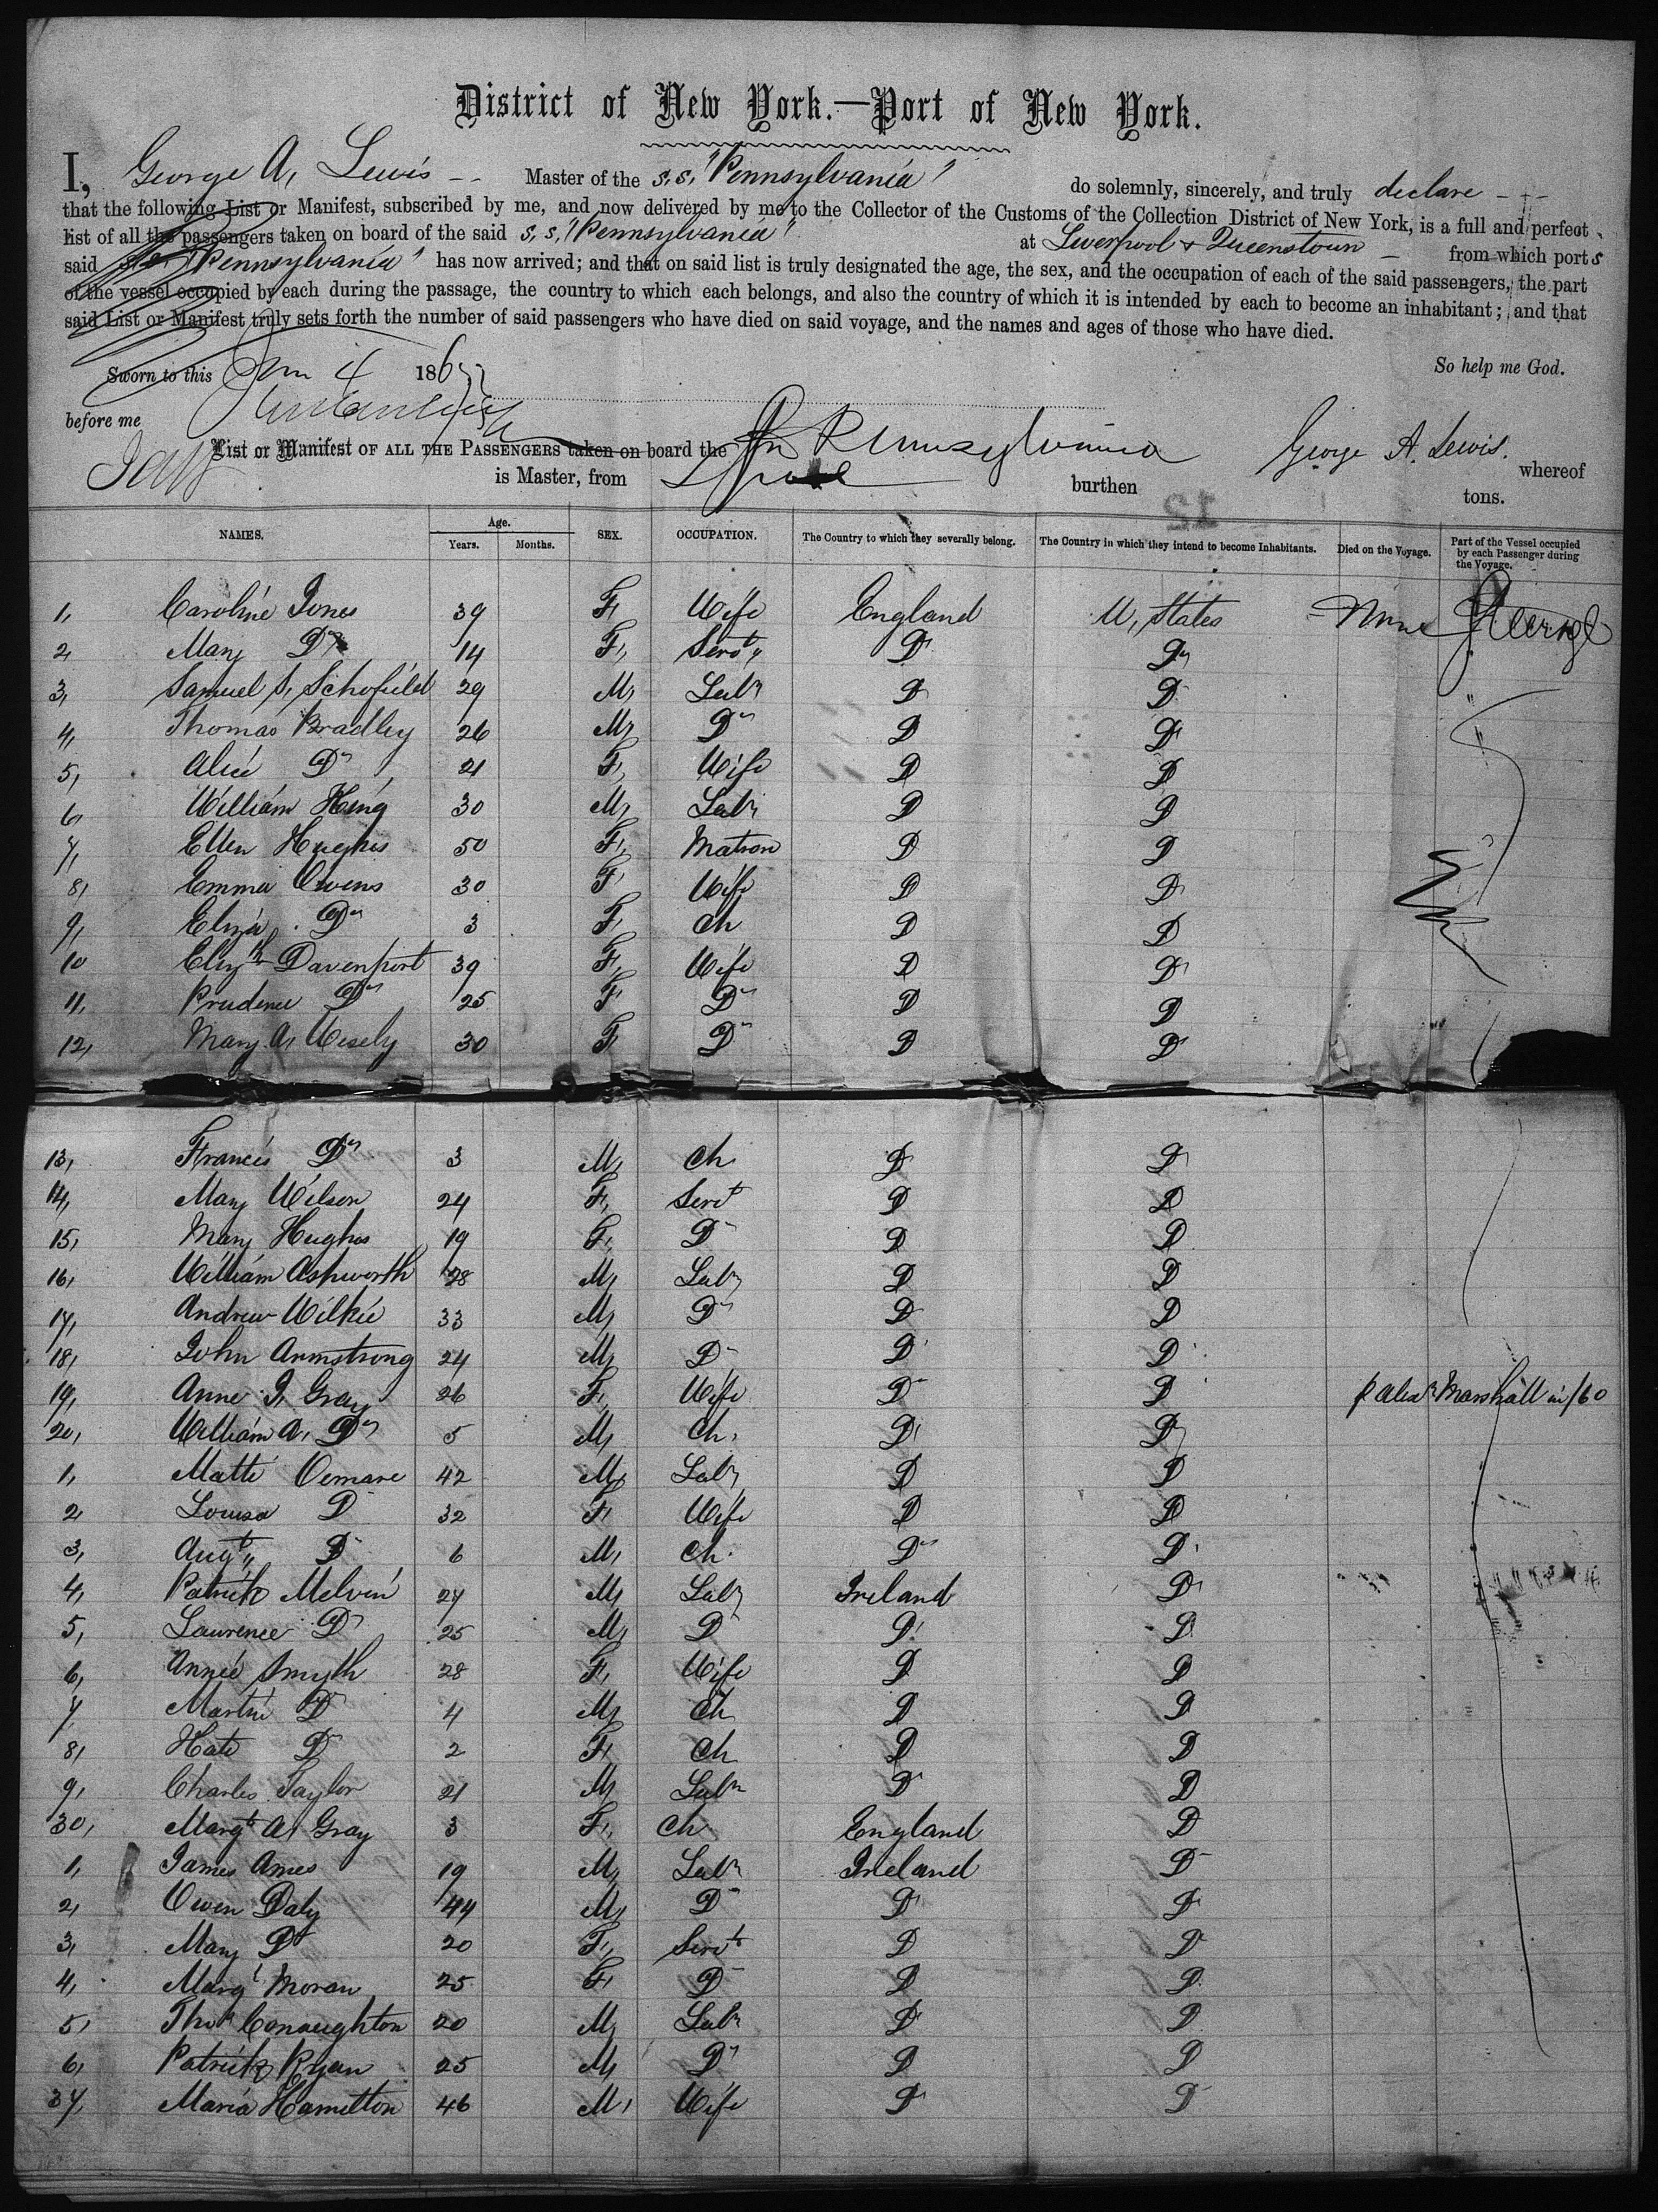 District of New York.—Port of New York.
I, George A, Lewis -- Master of the s,s, "Pennsylvania" do solemnly, sincerely, and truly declare
that the following List or Manifest, subscribed by me, and now delivered by me to the Collector of the Customs of the Collection District of New York, is a full and perfect
list of all the passengers taken on board of the said s,s, "Pennsylvania" at Liverpool & Queenstown from which ports
said s,s, "Pennsylvania" has now arrived; and that on said list is truly designated the age, the sex, and the occupation of each of the said passengers, the part
of the vessel occupied by each during the passage, the country to which each belongs, and also the country of which it is intended by each to become an inhabitant; and that
said List or Manifest truly sets forth the number of said passengers who have died on said voyage, and the names and ages of those who have died.
So help me God.
Sworn to this Jan 4 186
before me
List or Manifest OF ALL THE PASSENGERS taken on board the Pennsylvania George A. Lewis. whereof
is Master, from burthen tons.
12
NAMES. Age. Years. Months. SEX. OCCUPATION. The Country to which they severally belong. The Country in which they intend to become Inhabitants. Died on the Voyage. Part of the Vessel occupied by each Passenger during the Voyage.
1, Caroline Jones 39 F, Wife England U, States None Steerage
2 Mary Do 14 F, Servt, D D
3, Samuel S, Schofield 29 M, Labr D D
4, Thomas Bradley 26 M, Do D D
5, Alice Do 21 F, Wife D D
6, William King 30 M, Labr D D
7, Ellen Hughes 50 F, Matron D D
8, Emma Owens 30 F, Wife D D
9, Eliza Do 3 F, Ch D D
10 Elizth Davenport 39 F, Wife D D
11, Prudence Do 25 F Do D D
12, Mary A, Wesely 30 F D D D
13, Francis Do 3 M, Ch D D
14, Mary Wilson 24 F, Servt D D
15, Mary Hughes 19 F, D D D
16, William Ashworth 28 M, Labr D D
17, Andrew Wilkie 33 M, Do D D
18, John Armstrong 24 M, D D D
19, Anne J, Gray 26 F, Wife D D p Alexr Marshall in /60
20, William A, Do 5 M, Ch, D D
1, Matti Oemare 42 M, Labr D D
2, Louisa D 32 F, Wife D D
3, Augt, D 6 M, Ch. D D
4, Patrick Melvin 27 M, Labr Ireland D
5, Laurence Do 25 M, D D D
6, Annie Smyth 28 F, Wife D D
7, Martin D 4 M, Ch D D
8, Kate D 2 F, Ch D D
9, Charles Taylor 21 M, Labr D D
30, Margt A, Gray 3 F, Ch England D
1, James Ames 19 M, Labr Ireland D
2, Owen Daly 44 M, D D D
3, Mary D 20 F, Servt D D
4, Margt Moran 25 F, D D D
5, Thos Conaughton 20 M, Labr D D
6, Patrick Ryan 25 M, Do D D
37, Maria Hamilton 46 M, Wife D D